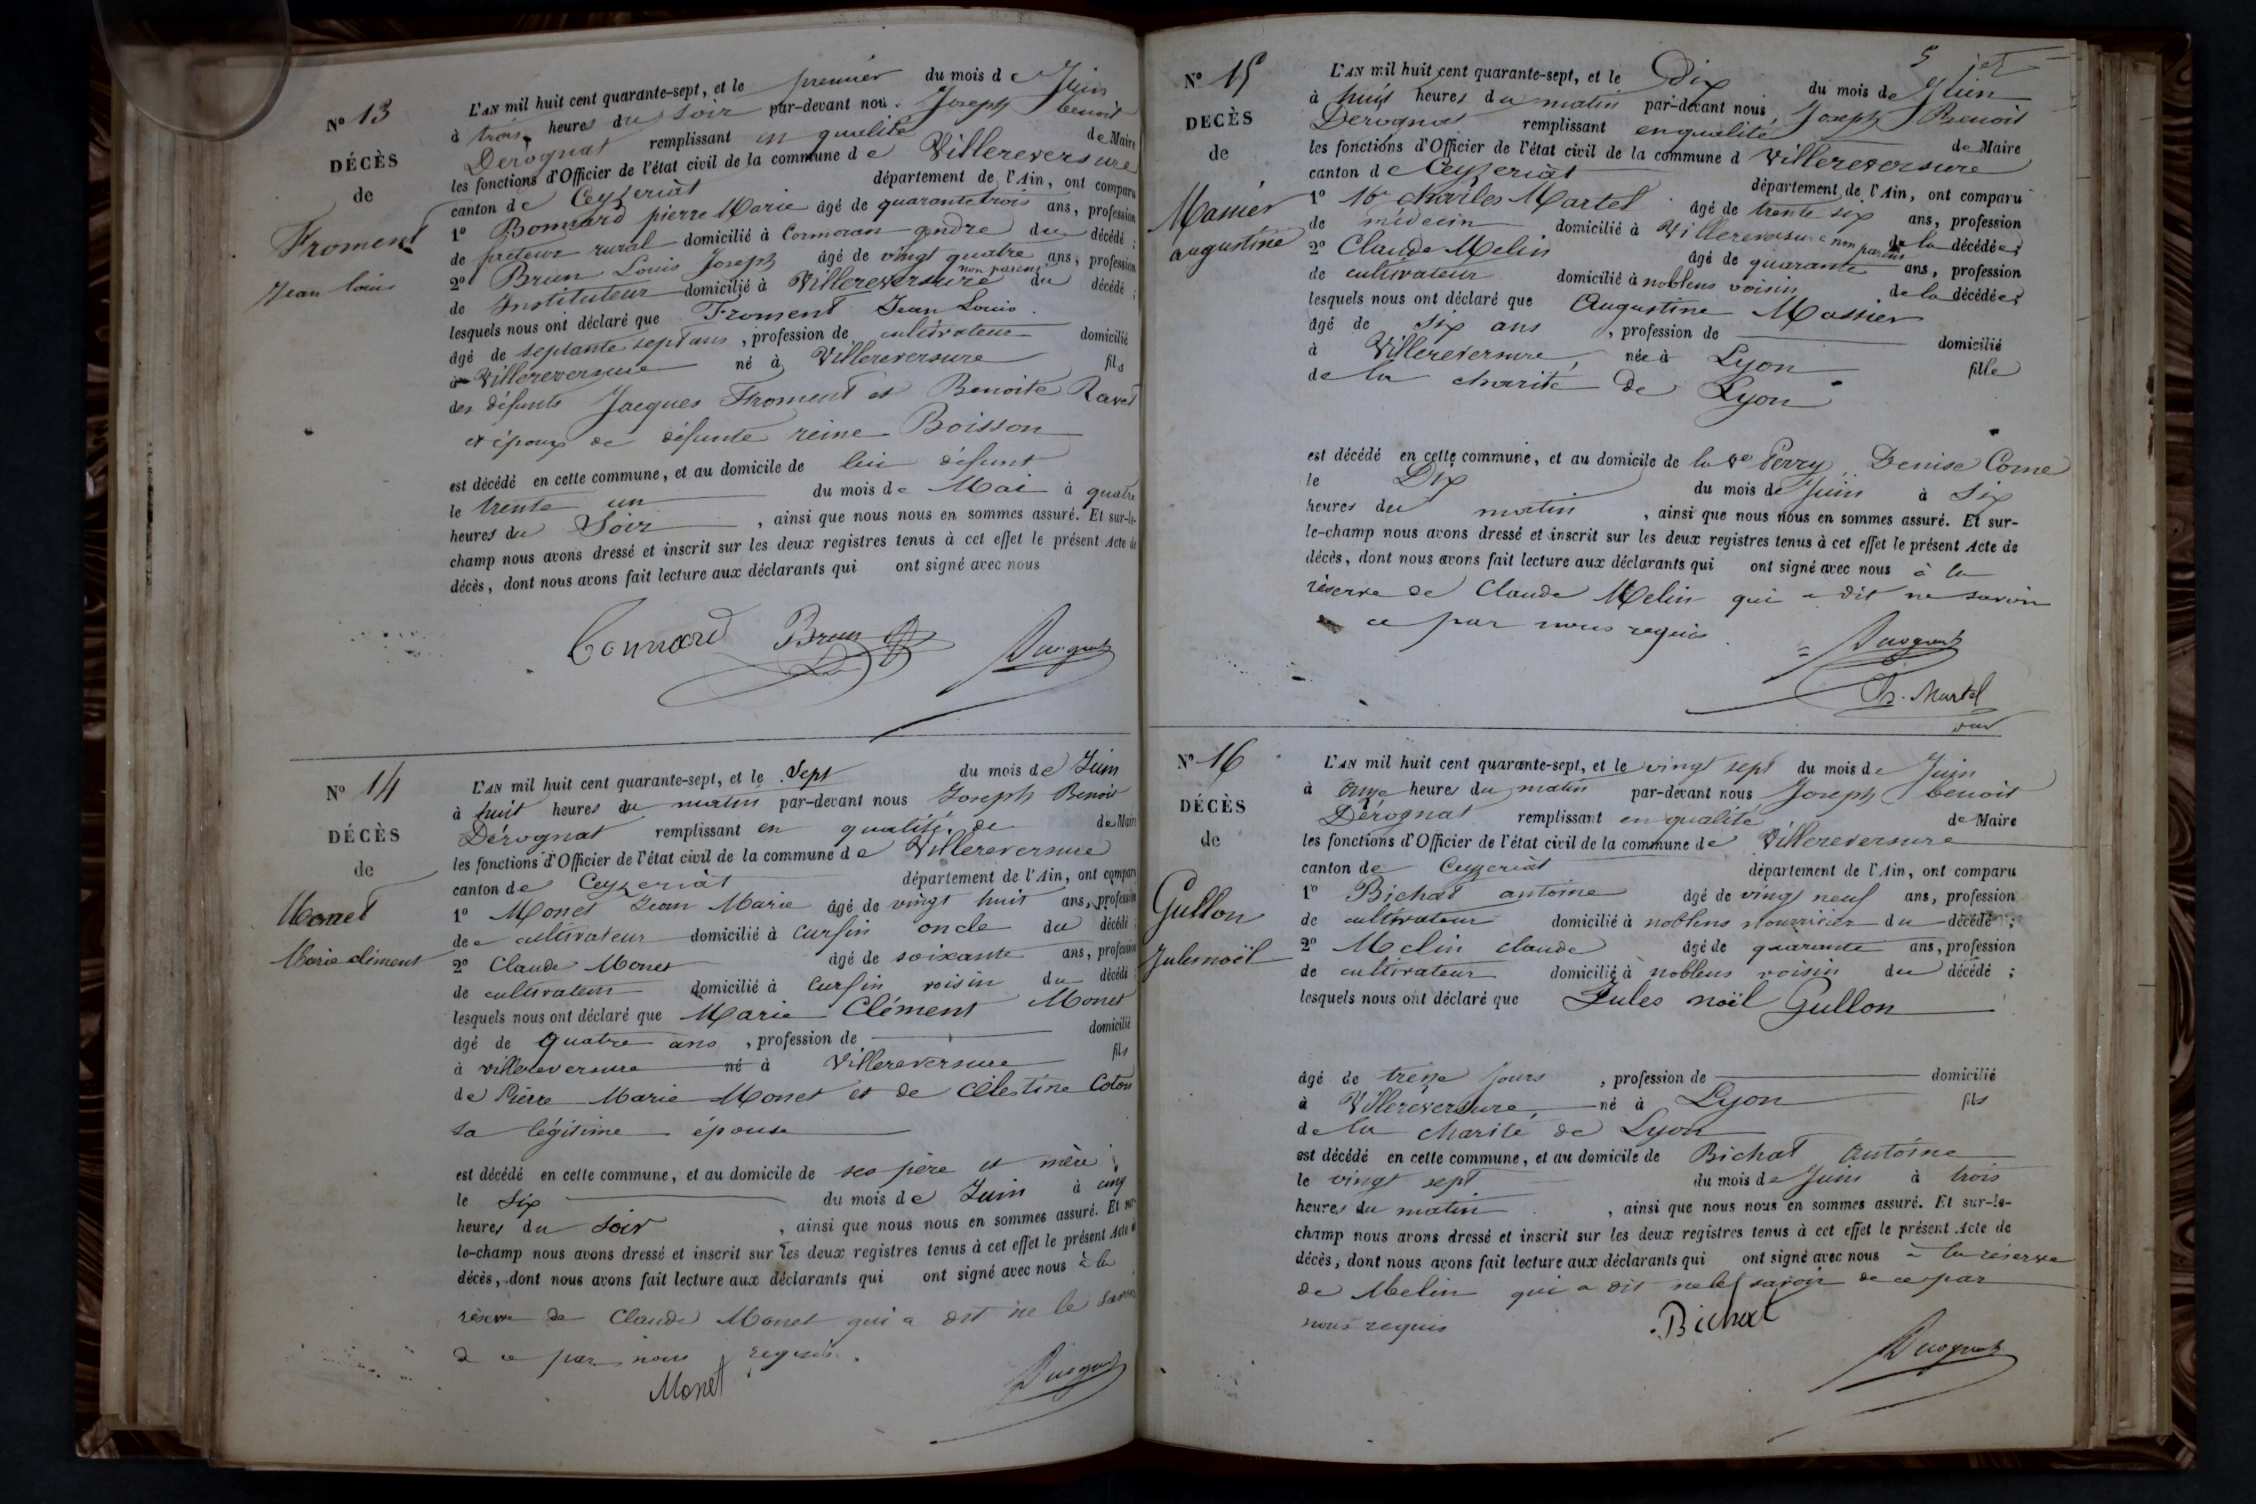 N° 13
DÉCÈS
de
Froment
Jean louis
L'AN mil huit cent quarante-sept, et le premier du mois de Juin
à trois heures du soir par-devant nous Joseph benoit
Dérognat remplissant en qualité de Maire
les fonctions d'Officier de l'état civil de la commune de Villereversure
canton de Ceyzeriàt département de l'Ain, ont comparu
1° Bonnard pierre Marie âgé de quarante trois ans, profession
de facteur rural domicilié à Cormoran gendre du décédé;
2° Brun Louis Joseph âgé de vingt quatre ans, profession
de Instituteur domicilié à Villereversure non parent du décédé;
lesquels nous ont déclaré que Froment Jean Louis
âgé de septante sept ans, profession de cultivateur domicilié
à Villereversure né à Villereversure fils
des défunts Jacques Froment et Benoite Ravet
et époux de défunte reine Boisson
est décédé en cette commune, et au domicile de lui défunt
le trente un du mois de Mai à quatre
heures du Soir, ainsi que nous nous en sommes assuré. Et sur-le-
champ nous avons dressé et inscrit sur les deux registres tenus à cet effet le présent Acte de
décès, dont nous avons fait lecture aux déclarants qui ont signé avec nous
Bonnard Brun Dérognat
N° 14
DÉCÈS
de
Monet
Marie clément
L'AN mil huit cent quarante-sept, et le Sept du mois de Juin
à huit heures du matin par-devant nous Joseph Benoit
Dérognat remplissant en qualité de de Maire
les fonctions d'Officier de l'état civil de la commune de Villereversure
canton de Ceyzeriàt département de l'Ain, ont comparu
1° Monet Jean Marie âgé de vingt huit ans, profession
de cultivateur domicilié à Curfin oncle du décédé;
2° Claude Monet âgé de soixante ans, profession
de cultivateur domicilié à Curfin voisin du décédé
lesquels nous ont déclaré que Marie Clément Monet
âgé de quatre ans, profession de domicilié
à villereversure né à Villereversure fils
de Pierre Marie Monet et de Célestine Coton
sa légitime épouse
est décédé en cette commune, et au domicile de ses père et mère
le Six du mois de Juin à cinq
heures du Soir, ainsi que nous nous en sommes assuré. Et sur-
le-champ nous avons dressé et inscrit sur les deux registres tenus à cet effet le présent Acte de
décès, dont nous avons fait lecture aux déclarants qui ont signé avec nous à la
réserve de Claude Monet qui a dit ne le savoir
de ce par nous requis.
Monet Dérognat
N° 15
DÉCÈS
de
Massier
augustine
L'AN mil huit cent quarante-sept, et le Dix du mois de Juin
à huit heures du matin par-devant nous Joseph Benoit
Dérognat remplissant en qualité de Maire
les fonctions d'Officier de l'état civil de la commune d Villereversure
canton de Ceyzeriàt département de l'Ain, ont comparu
1° charles Martel âgé de trente six ans, profession
de médecin domicilié à Villereversure non parent de la décédée;
2° Claude Melin âgé de quarante ans, profession
de cultivateur domicilié à noblens voisin de la décédée;
lesquels nous ont déclaré que Augustine Massier
âgé de six ans, profession de domicilié
à Villereversure, née à Lyon fille
de la charité de Lyon
est décédé en cette commune, et au domicile de la Ve Perry Denise Come
le Dix du mois de Juin à Six
heures du matin, ainsi que nous nous en sommes assuré. Et sur-
le-champ nous avons dressé et inscrit sur les deux registres tenus à cet effet le présent Acte de
décès, dont nous avons fait lecture aux déclarants qui ont signé avec nous à la
réserve de Claude Melin qui a dit ne savoir
ce par nous requis.
Dérognat
Ch. Martel
N° 16
DÉCÈS
de
Gullon
Jules noël
L'AN mil huit cent quarante-sept, et le vingt sept du mois de Juin
à onze heures du matin par-devant nous Joseph benoit
Dérognat remplissant en qualité de Maire
les fonctions d'Officier de l'état civil de la commune de Villereversure
canton de Ceyzeriàt département de l'Ain, ont comparu
1° Bichat antoine âgé de vingt neuf ans, profession
de cultivateur domicilié à noblens nourricier du décédé;
2° Melin claude âgé de quarante ans, profession
de cultivateur domicilié à noblens voisin du décédé;
lesquels nous ont déclaré que Jules noël Gullon
âgé de treize jours, profession de domicilié
à Villereversure, né à Lyon fils
de la charité de Lyon
est décédé en cette commune, et au domicile de Bichat Antoine
le vingt sept du mois de Juin à trois
heures du matin, ainsi que nous nous en sommes assuré. Et sur-le-
champ nous avons dressé et inscrit sur les deux registres tenus à cet effet le présent Acte de
décès, dont nous avons fait lecture aux déclarants qui ont signé avec nous à la réserve
de Melin qui a dit ne le savoir de ce par
nous requis
Bichat
Dérognat